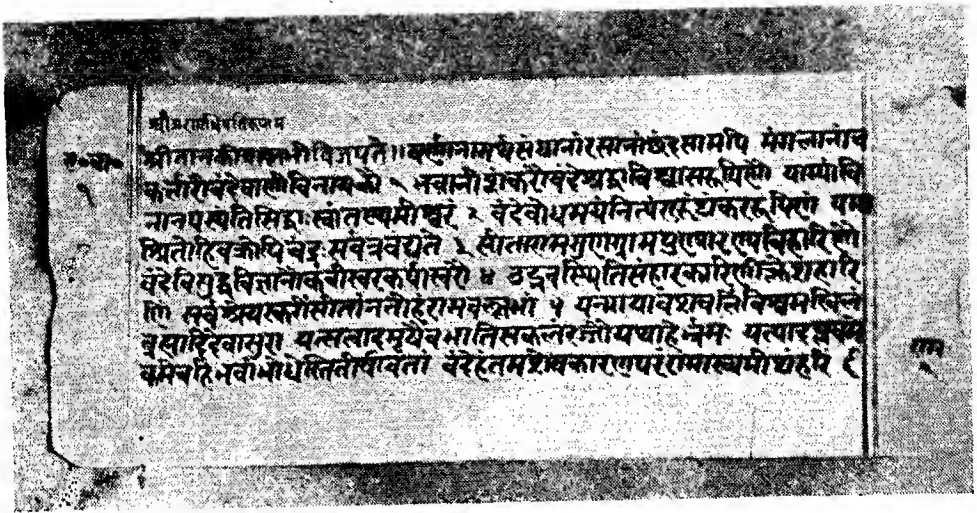 श्रीजानकीवल्लभो विजयते ॥ वर्णानामर्थसंघानां रसानां छंदसामपि मंगलानां च
कर्त्तारौ वंदे वाणीविनायकौ १ भवानीशंकरौ वंदे श्रद्धाविश्वासरूपिणौ याभ्यां वि
ना न पश्यंति सिद्धाः स्वांतस्थमीश्वरं २ वंदे बोधमयं नित्यं गुरुं शंकररूपिणं यमा
श्रितो हि वक्रोपि चंद्रः सर्वत्र वंद्यते ३ सीतारामगुणग्रामपुण्यारण्यविहारिणौ
वंदे विशुद्धविज्ञानौ कवीश्वरकपीश्वरौ ४ उद्भवस्थितिसंहारकारिणीं क्लेशहारि
णीं सर्वश्रेयस्करीं सीतां नतोहं रामवल्लभां ५ यन्मायावशवर्त्ति विश्वमखिलं
ब्रह्मादिदेवासुरा यत्सत्वादमृषैव भाति सकलं रज्जौ यथाहेर्भ्रमः यत्पादप्लवमे
वमेव हि भवांभोधेस्तितीर्षावतां वंदेहं तमशेषकारणपरं रामाख्यमीशं हरिं ६
राम